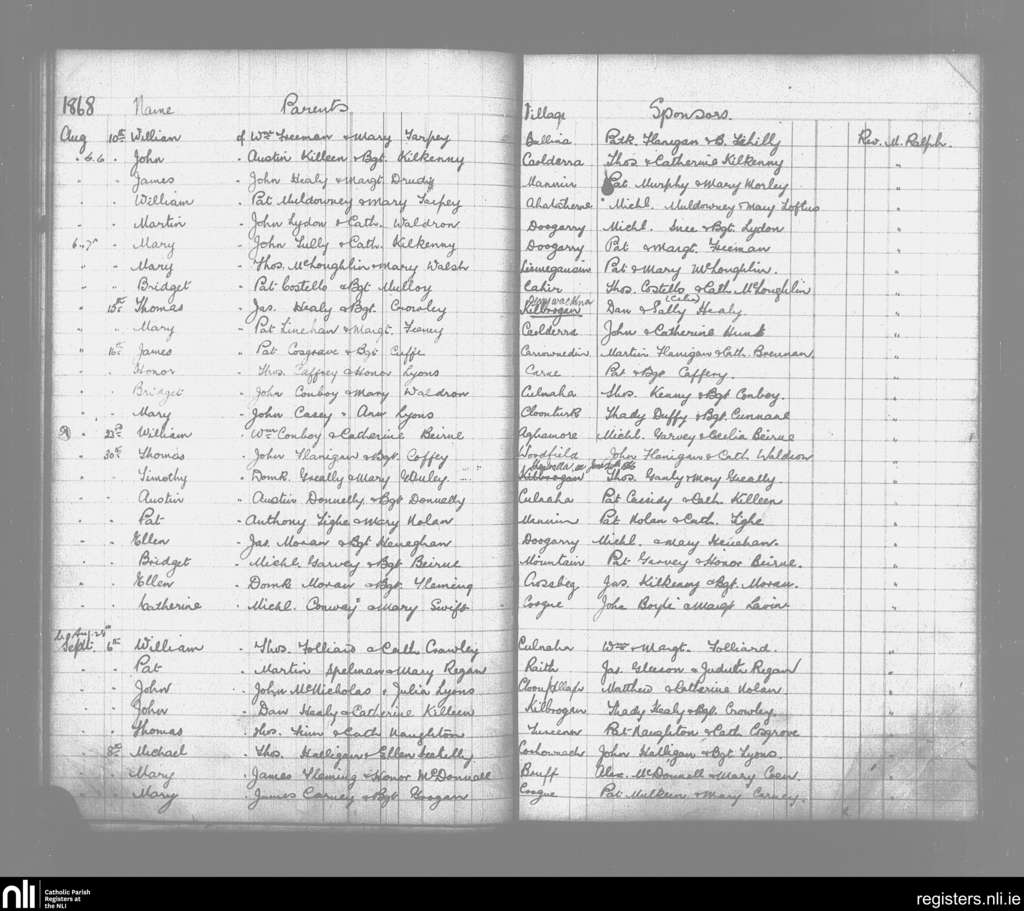 1868 Name Parents Village Sponsors.
Aug 10th William of Wm Freeman & Mary Tarpey Ballina Patk. Flanigan & B. Fehilly Rev. M. Ralph.
" John " Austin Killeen & Bgt. Kilkenny Caolderra Thos & Catherine Kilkenny "
" " James " John Healy & Margt. Mannin Pat Murphy & Mary Morley "
" " William " Pat Muldowney & Mary Tarpey Michl. Muldowney & Mary Loftus "
" " Martin " John Lydon & Cath. Waldron Doogarry Michl. & Bgt. Lydon "
" Mary " John Lully & Cath. Kilkenny Doogarry Pat & Margt. Freeman "
" " Mary " Thos. McLoughlin & Mary Walsh Pat & Mary McLoughlin. "
" " Bridget " Pat Costello & Bgt Mulloy Cahir Thos. Costello & Cath. McLoughlin "
(Celia)
" 15th Thomas " Jas. Healy & Bgt. Crowley Kilbrogan Dan & Sally Healy "
" " Mary " Pat Linehan & Margt. Feeney Caolderra John & Catherine Hunt "
" 16th James " Pat Cosgrave & Bgt Cuffe Carrownedin Martin Flanigan & Cath. Brennan "
" " Honor " Thos. Caffrey & Honor Lyons Carne Pat & Bgt Caffery. "
" " Bridget " John Conboy & Mary Waldron Culnaha Thos. Kenny & Bgt Conboy. "
" " Mary " John Casey & Ann Lyons Cloonturk Thady Duffy & Bgt. Cunnane "
" 23rd William " Wm Conboy & Catherine Beirne Aghamore Michl. Garvey & Cecelia Beirne "
" 30th Thomas " John Flanigan & Bgt. Coffey Woodfield John Flanigan & Cath. Waldron "
" " Timothy " Domk. Greally & Mary Kilbrogan Thos. Ganly & Mary Greally "
" " Austin " Austin Donnelly & Bgt Donnelly Culnaha Pat Cassidy & Cath. Killeen "
" " Pat " Anthony Tighe & Mary Nolan Mannin Pat Nolan & Cath. Tighe "
" " Ellen " Jas Moran & Bgt Heneghan Doogarry Michl. & Mary Henehan. "
" " Bridget " Michl. Garvey & Bgt Beirne Mountain Pat Garvey & Honor Beirne. "
" " Ellen " Domk Moran & Bgt. Fleming Crossbeg Jas. Kilkenny & Bgt. Moran. "
" " Catherine " Michl. Conway & Mary Swift Coogue John Boyle & Margt Lavin "
Aug. 28th
Sept. 6th William " Thos. Folliard & Cath. Crawley Culnaha Wm & Margt. Folliard. "
" " Pat " Martin Spelman & Mary Regan Raith Jas. Gleeson & Judith Regan "
" " John " John McNicholas & Julia Lyons Matthew & Catherine Nolan "
" " John " Dan Healy & Catherine Killeen Kilbrogan Thady Healy & Bgt. Crowley "
" " Thomas " Thos. Finn & Cath Naughton Pat Naughton & Cath Cosgrove "
" 8th Michael " Thos. Halligan & Ellen John Halligan & Bgt Lyons "
" " Mary " James Fleming & Honor McDonnell Bruff Alex. McDonnell & Mary Coen. "
" " Mary " James Carney & Bgt Grogan Coogue Pat Mulkeen & Mary Carney. "
nli Catholic Parish
Registers at
the NLI
registers.nli.ie